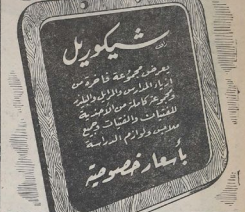 شيكوريل
يعرض مجموعة فاخرة من
أزياء المدارس والمرايل والبلد
ومجموعة كاملة من الأحذية
للفتيات والفتيان وجميع
ملابس ولوازم الدراسة
بأسعار خصوصية